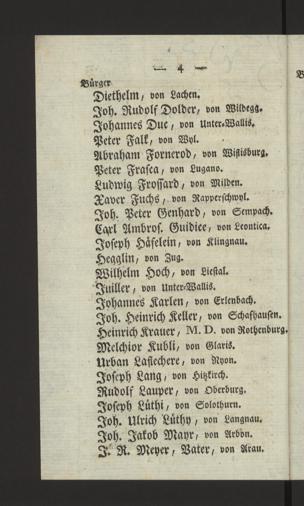 — 4 —
Bürger
Diethelm, von Lachen.
Joh. Rudolf Dolder, von Wildegg.
Johannes Duc, von Unter-Wallis.
Peter Falk, von Wyl.
Abraham Fornerod, von Wiflisburg.
Peter Frasca, von Lugano.
Ludwig Frossard, von Milden.
Xaver Fuchs, von Rapperschwyl.
Joh. Peter Genhard, von Sempach.
Carl Ambros. Guidice, von Leontica.
Joseph Häfelein, von Klingnau.
Hegglin, von Zug.
Wilhelm Hoch, von Liestal.
Juiller, von Unter-Wallis.
Johannes Karlen, von Erlenbach.
Joh. Heinrich Keller, von Schafhausen.
Heinrich Krauer, M. D. von Rothenburg.
Melchior Kubli, von Glaris.
Urban Laflechere, von Nyon.
Joseph Lang, von Hitzkirch.
Rudolf Lauper, von Oberburg.
Joseph Lüthi, von Solothurn.
Joh. Ulrich Lüthy, von Langnau.
Joh. Jakob Mayr, von Arbon.
J. R. Meyer, Vater, von Arau.